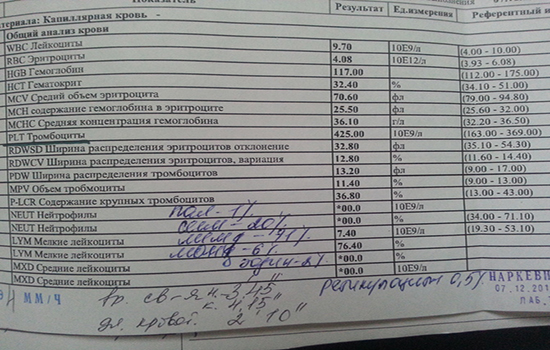 Показатель Результат Ед.измерения Референтный и
териала: Капиллярная кровь -
Общий анализ крови
WBC Лейкоциты 9.70 10E9/л (4.00 - 10.00)
RBC Эритроциты 4.08 10E12/л (3.93 - 6.08)
HGB Гемоглобин 117.00 (112.00 - 175.00)
HCT Гематокрит 32.40 % (34.10 - 51.00)
MCV Средий объем эритроцита 70.60 фл (79.00 - 94.80)
MCH содержание гемоглобина в эритроците 25.50 фл (25.60 - 32.00)
MCHC Средняя концентрация гемоглобина 36.10 г/л (32.20 - 36.50)
PLT Тромбоциты 425.00 10E9/л (163.00 - 369.00)
RDWSD Ширина распределения эритроцитов отклонение 32.80 фл (35.10 - 54.30)
RDWCV Ширина распределения эритроцитов, вариация 12.80 % (11.60 - 14.40)
PDW Ширина распределения тромбоцитов 13.20 фл (9.00 - 17.00)
MPV Объем тробмоциты 11.40 % (9.00 - 13.00)
P-LCR Содержание крупных тромбоцитов 36.80 % (13.00 - 43.00)
NEUT Нейтрофилы пал - 1% *00.0 10E9/л
NEUT Нейтрофилы сегм - 20% *00.0 % (34.00 - 71.10)
LYM Мелкие лейкоциты лимф - 71% 7.40 10E9/л (19.30 - 53.10)
LYM Мелкие лейкоциты моноц - 6% 76.40 %
MXD Средние лейкоциты *00.0 10E9/л
MXD Средние лейкоциты *00.0 %
4 ММ/Ч вр. св-я н - 3,45" ретикулоциты 0,5% НАРКЕВИ
к - 4,15" 07.12.201
дл. кровот. 2' 10" ЛАБ.